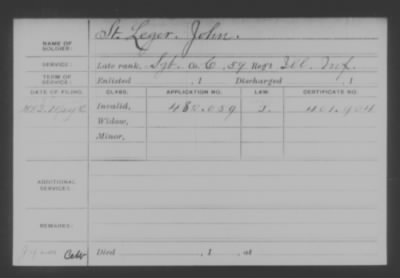 NAME OF SOLDIER: St. Leger, John.
SERVICE: Late rank, Sgt. Co. C, 59 Reg't Ill. Inf.
TERM OF SERVICE: Enlisted , 1 Discharged , 1
DATE OF FILING. CLASS. APPLICATION NO. LAW. CERTIFICATE NO.
1883, May Invalid, 480.059 401.904
Widow,
Minor,
ADDITIONAL SERVICES:
REMARKS:
Died , 1 , at